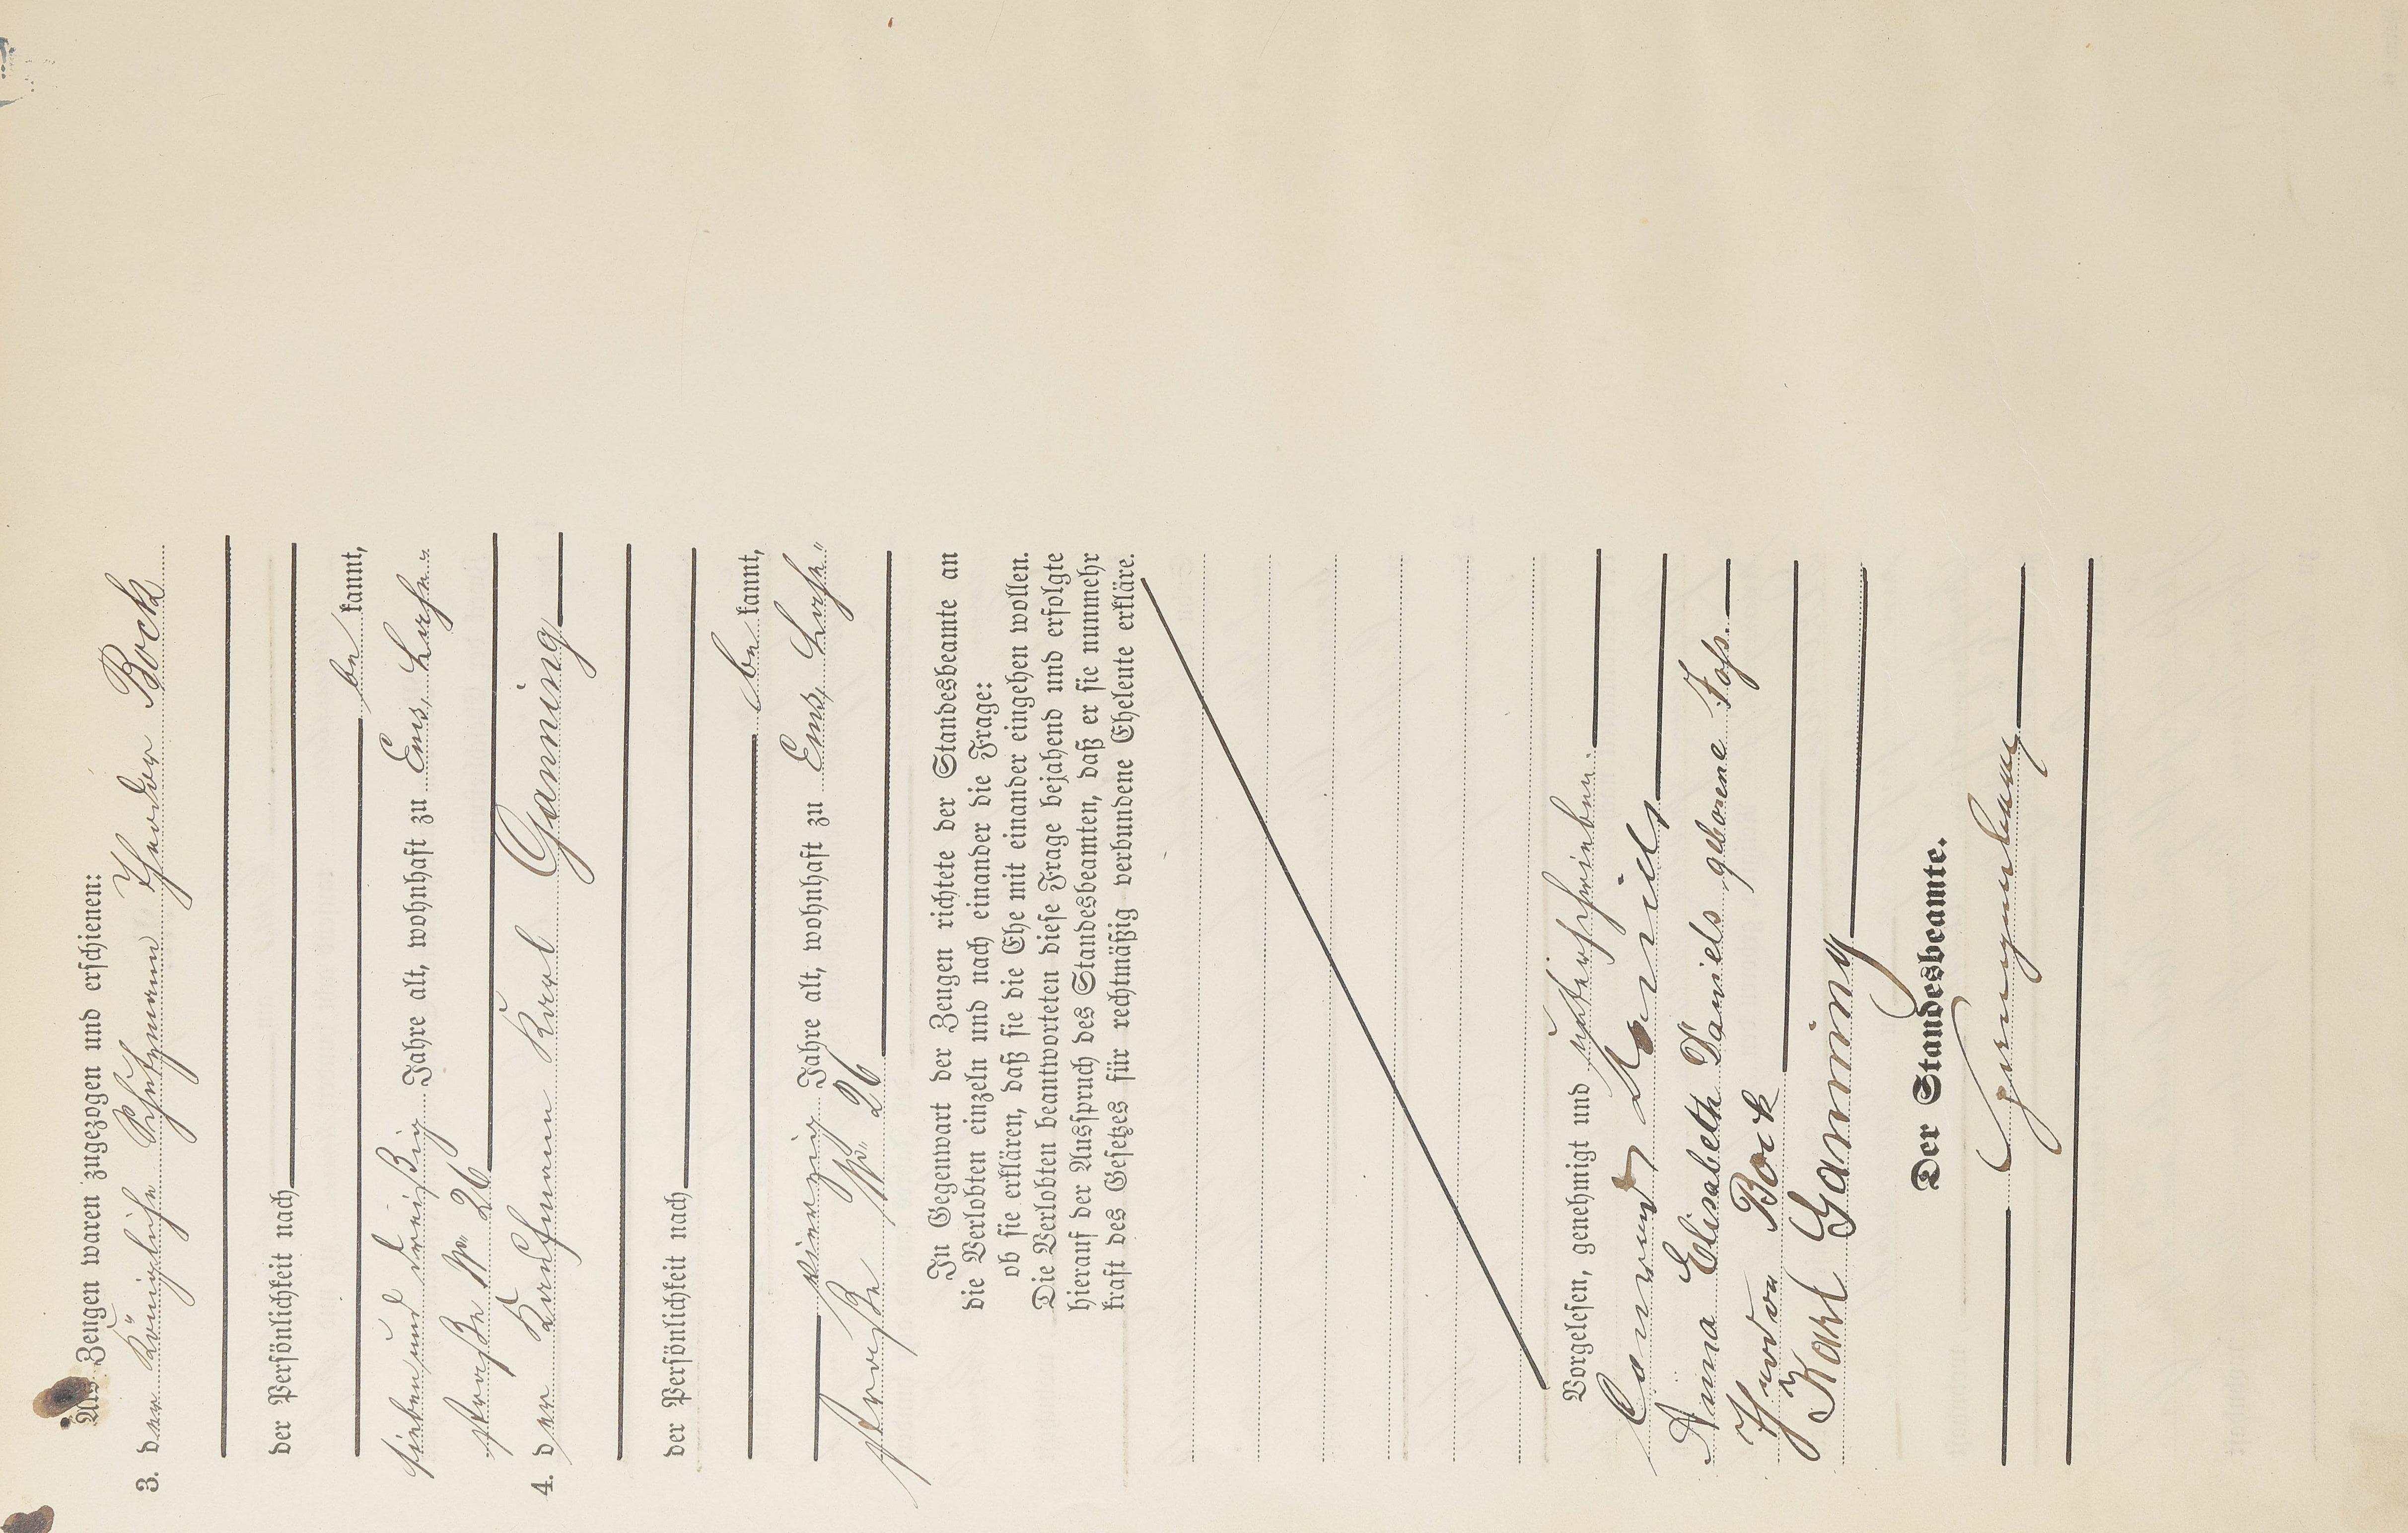 Als Zeugen waren zugezogen und erschienen:
3. der Königliche Schutzmann Theodor Bock
der Persönlichkeit nach
be kannt,
siebenunddreißig Jahre alt, wohnhaft zu Ems,
straße No. 26
4. der Kaufmann Karl Ganning
der Persönlichkeit nach
be kannt,
vierzig Jahre alt, wohnhaft zu Ems,
straße No. 26
In Gegenwart der Zeugen richtete der Standesbeamte an
die Verlobten einzeln und nach einander die Frage:
ob sie erklären, daß sie die Ehe mit einander eingehen wollen.
Die Verlobten beantworteten diese Frage bejahend und erfolgte
hierauf der Ausspruch des Standesbeamten, daß er sie nunmehr
kraft des Gesetzes für rechtmäßig verbundene Eheleute erkläre.
Vorgelesen, genehmigt und unterschrieben.
Conrad Daniels
Anna Elisabeth Daniels geborene Foss.
Theodor Bock
Karl Ganning
Der Standesbeamte.